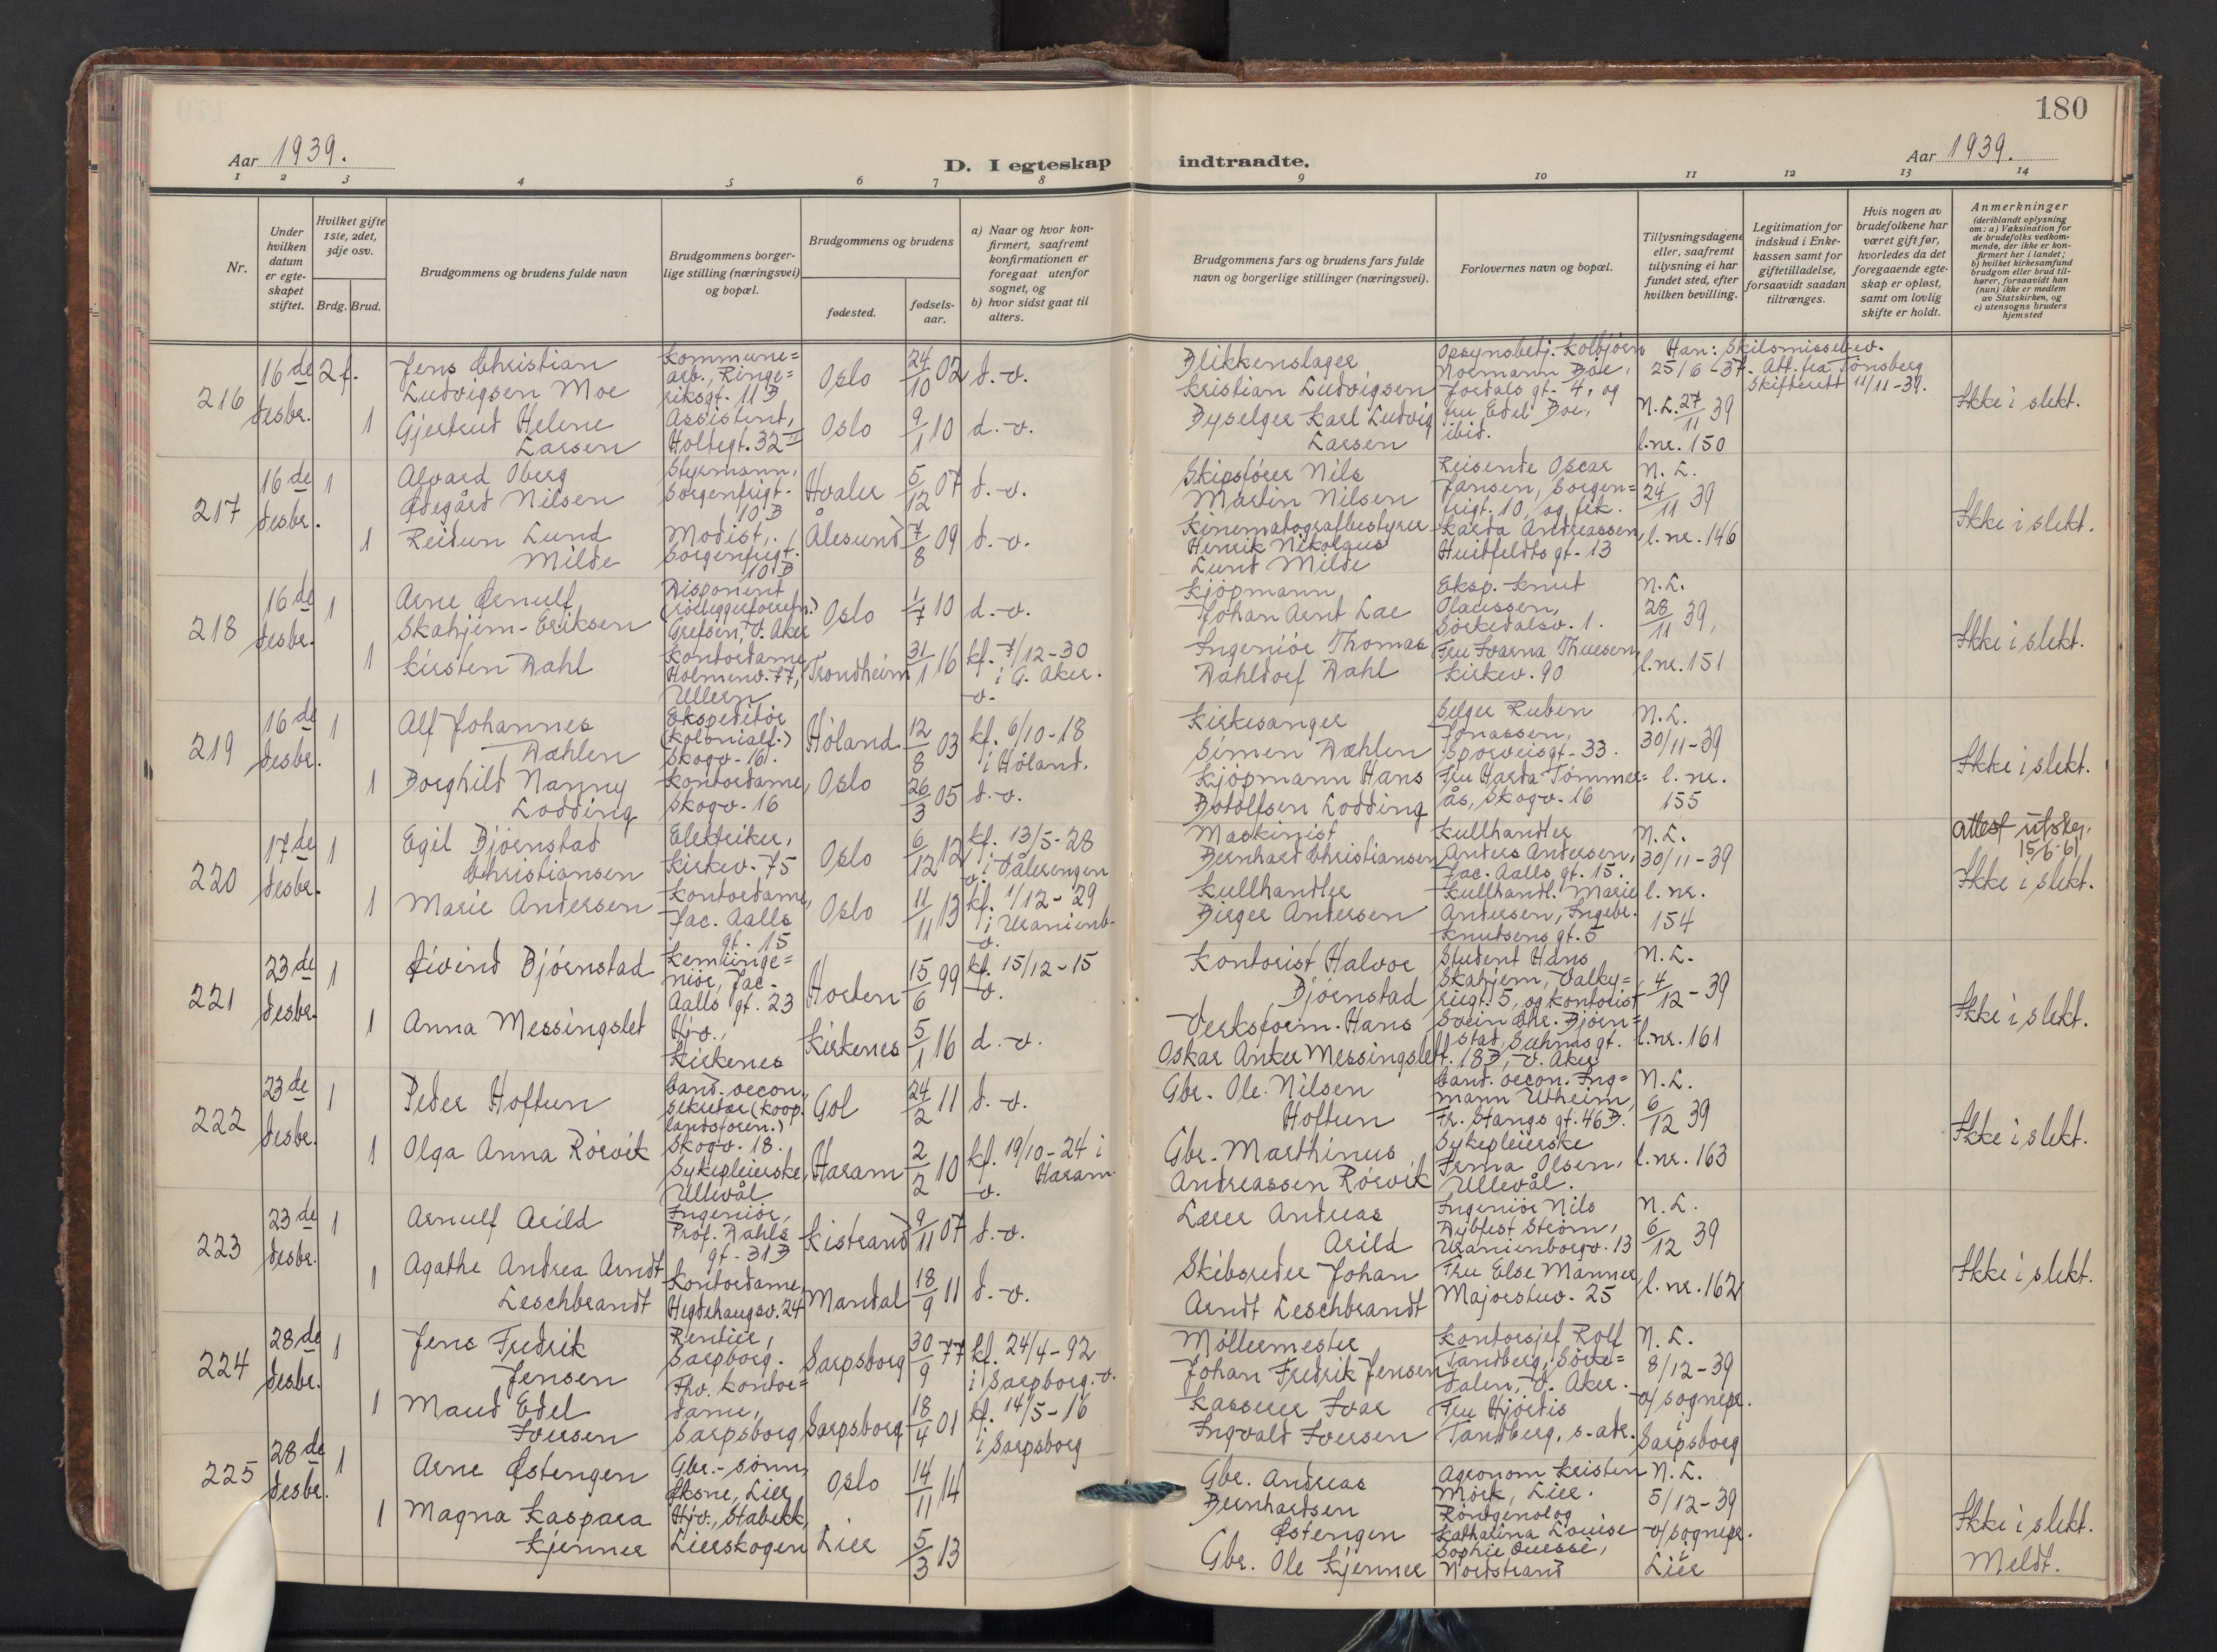 180
Aar 1939.
D. I egteskap indtraadte.
Aar 1939.
1 2 3 4 5 6 7 8 9 10 11 12 13 14
Nr.
Under hvilken datum er egteskapet stiftet.
Hvilket gifte 1ste, 2det, 3dje osv.
Brdg. Brud.
Brudgommens og brudens fulde navn
Brudgommens borgerlige stilling (næringsvei) og bopæl.
Brudgommens og brudens
fødested.
fødselsaar.
a) Naar og hvor konfirmert, saafremt konfirmationen er foregaat utenfor sognet, og
b) hvor sidst gaat til alters.
Brudgommens fars og brudens fars fulde navn og borgerlige stillinger (næringsvei).
Forlovernes navn og bopæl.
Tillysningsdagene eller, saafremt tillysning ei har fundet sted, efter hvilken bevilling.
Legitimation for indskud i Enkekassen samt for giftetilladelse, forsaavidt saadan tiltrænges.
Hvis nogen av brudefolkene har været gift før, hvorledes da det foregaaende egteskap er opløst, samt om lovlig skifte er holdt.
Anmerkninger
(deriblandt oplysning om: a) Vaksination for de brudefolks vedkommende, der ikke er konfirmert her i landet;
b) hvilket kirkesamfund brudgom eller brud tilhører, forsaavidt han (hun) ikke er medlem av Statskirken, og
c) utensogns bruders hjemsted
216
16de desbr.
2 f.
Jens Christian Ludvigsen Moe
Kommunearb., Ringeriksgt. 11 B
Oslo
24/10 02
d. - v.
Blikkenslager Kristian Ludvigsen
Opsynsbetj. Kolbjørn Normann Bøe, Jordals gt. 4, og
Han: Skilsmissebev. 25/6-37. Att. fra Tønsberg Skifterett 11/11-39.
1
Gjertrud Helene Larsen
Assistent, Holtegt. 32 II
Oslo
9/1 10
d. - v.
Byselger Karl Ludvig Larsen
fru Edel Boe, ibid.
N.L. 27/11 39
l.nr. 150
Ikke i slekt.
217
16de desbr.
1
Alvard Oberg Ødegård Nilsen
Styrmann, Sorgenfrigt. 10 B
Hvaler
5/12 07
d. - v.
Skipsfører Nils Martin Nilsen
Reisende Oscar Jansen, Sorgenfrigt. 10, og frk.
N.L.
24/11 39
1
Reidun Lund Milde
Modist, Sorgenfrigt. 10 B
Ålesund
7/8 09
d. - v.
Kinematografbestyrer Henrik Nikolaus Lund Milde
Karda Andreassen, Huitfeldts gt. 13
l.nr. 146
Ikke i slekt.
218
16de desbr.
1
Arne Ørnulf Skahjem-Eriksen
Disponent
Grefsen, V. Aker
Oslo
1/7 10
d. - v.
Kjøpmann Johan Arnt Lae
Eksp. Knut Olaussen, Sørkedalsv. 1.
N.L.
28/11 39,
1
Kirsten Dahl
Kontordame, Holmenv. 77, Ullern
Trondheim
31/1 16
kf. 7/12-30 i V. Aker.
- v.
Ingeniør Thomas Dahldorf Dahl
Fru Ivarna Thuesen, Kirkev. 90
l.nr. 151
Ikke i slekt.
219
16de desbr.
1
Alf Johannes Dæhlen
Ekspeditør (kolonialf.) Skogv. 16.
Høland
12/8 03
kf. 6/10-18 i Høland.
Kirkesanger Simen Dæhlen
Selger Ruben Jonassen, Sporveisgt. 33.
N.L.
30/11-39
1
Borghild Nanny Lodding
Kontordame, Skogv. 16
Oslo
26/3 05
d. - v.
Kjøpmann Hans Botolfsen Lodding
Fru Harda Tømmerås, Skogv. 16
l.nr. 155
Ikke i slekt.
220
17de desbr.
1
Egil Bjørnstad Christiansen
Elektriker, Kirkev. 75
Oslo
6/12 12
kf. 13/5-28 i Vålerengen
v.
Maskinist Bernhard Christiansen
Kullhandler Anders Andersen, Jac. Aalls gt. 15.
N.L.
30/11-39
attest utsker. 15/6-61
1
Marie Andersen
Kontordame, Jac. Aalls gt. 15
Oslo
11/11 13
kf. 1/12-29 i Uranienb.
- v.
Kullhandler Birger Andersen
Kullhandl. Marie Andersen, Ingebr. Knudsens gt. 5
l.nr. 154
Ikke i slekt.
221
23de desbr.
1
Eivind Bjørnstad
Kemiingeniør, Jac. Aalls gt. 23
Horten
15/6 99
kf. 15/12-15
- v.
Kontorist Halvor Bjørnstad
Student Hans Skahjem, Valkyriegt. 5, og kontorist
N.L.
4/12-39
1
Anna Messingslet
Hjv., Kirkenes
Kirkenes
5/1 16
d. - v.
Verksform. Hans Oskar Anker Messingslett.
Svein Chr. Bjørnstad, Suhms gt. 18 B, V. Aker
l.nr. 161
Ikke i slekt.
222
23de desbr.
1
Peder Hoftun
Cand. oecon., sekretær (Koop. landsforen.) Skogv. 18.
Gol
24/2 11
d. - v.
Gbr. Ole Nilsen Hoftun
Cand. oecon. Ingmann Utheim, Fr. Stangs gt. 46 B.
N.L.
6/12 39
1
Olga Anna Rørvik
Sykepleierske, Ullevål
Haram
2/2 10
kf. 19/10-24 i Haram
- v.
Gbr. Marthinus Andreassen Rørvik
Sykepleierske Irma Olsen, Ullevål.
l.nr. 163
Ikke i slekt.
223
23de desbr.
1
Arnulf Arild
Ingeniør, Prof. Dahls gt. 31 B
Kistrand
9/11 07
d. - v.
Lærer Andreas Arild
Ingeniør Nils Dybfest Strøm, Uranienborgv. 13
N.L.
6/12 39
1
Agathe Andrea Arndt Leschbrandt
Kontordame, Hegdehaugsv. 24
Mandal
18/9 11
d. - v.
Skibsreder Johan Arndt Leschbrandt
Fru Else Manner, Majorstuv. 25
l.nr. 162
Ikke i slekt.
224
28de desbr.
1
Jens Fredrik Jensen
Rentier, Sarpborg.
Sarpsborg
30/9 77
kf. 24/4-92 i Sarpborg. - v.
Møllermester Johan Fredrik Jensen
Kontorsjef Rolf Tandberg, Sørkedalen, V. Aker.
N.L.
8/12-39
1
Maud Edel Iversen
Fhv. kontordame, Sarpsborg
Sarpsborg
18/4 01
kf. 14/5-16 i Sarpsborg
Kasserer Ivar Ingvald Iversen
Fru Hjørdis Tandberg, s. adr.
v/ sognepr. i Sarpsborg
225
28de desbr.
1
Arne Østengen
Gbr.-sønn, Øksne, Lier
Oslo
14/11 14
Gbr. Andreas Bernhardsen Østengen
Agronom Kristen Mørk, Lier.
N.L.
5/12-39
1
Magna Kaspara Kjenner
Hjv., Stabekk, Lierskogen
Lier
5/3 13
Gbr. Ole Kjenner
Røntgenolog Katharina Louise Sophie
Nordstrand
v/ sognepr. i Lier
Ikke i slekt.
Meldt.